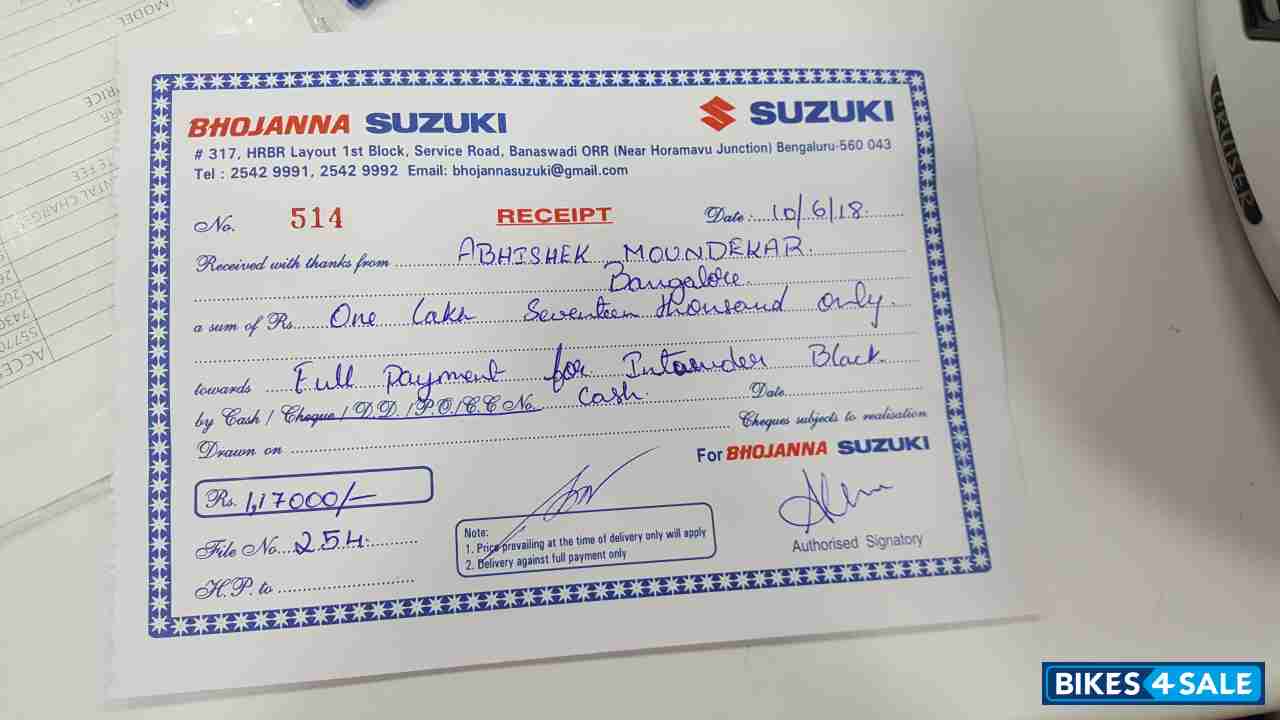 MODEL
PRICE
BHOJANNA SUZUKI
SUZUKI
# 317, HRBR Layout 1st Block, Service Road, Banaswadi ORR (Near Horamavu Junction) Bengaluru-560 043
Tel : 2542 9991, 2542 9992 Email: bhojannasuzuki@gmail.com
No. 514 RECEIPT Date: 10/6/18.
Received with thanks from ABHISHEK MOUNDEKAR.
Bangalore.
a sum of Rs. One Lakh Seventeen thousand only.
towards Full Payment for Intaruder Black
by Cash / Cheque / D.D. / P.O / C.C No. cash. Date
Drawn on Cheques subjects to realisation
For BHOJANNA SUZUKI
Rs. 1,17000/-
File No. 254.
H.P. to
Note:
1. Price prevailing at the time of delivery only will apply
2. Delivery against full payment only
Authorised Signatory
CRUISER
BIKES4SALE